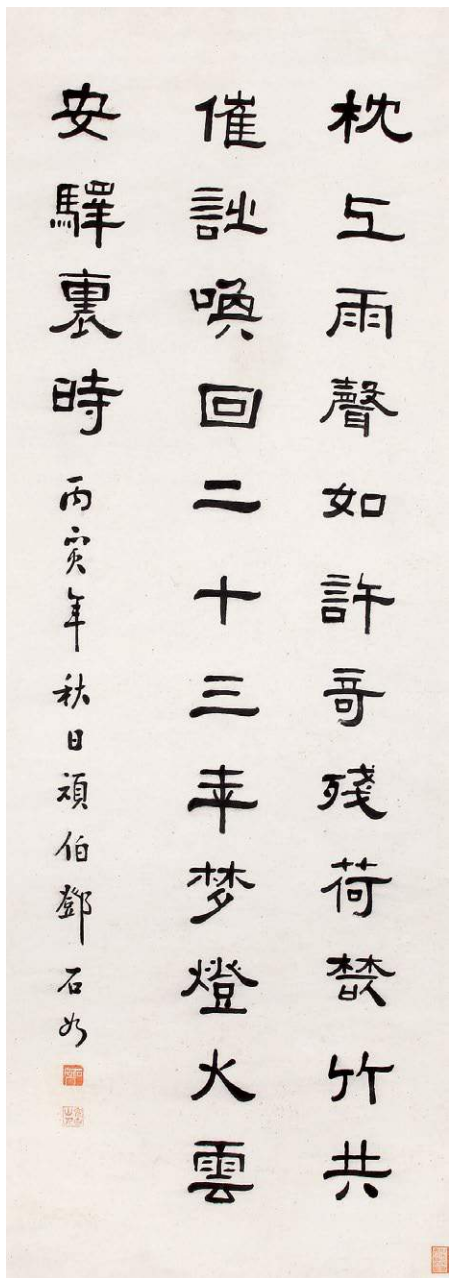 枕上雨聲如許奇殘荷叢竹共
催詩喚回二十三年梦燈火雲
安驛裏時
丙寅年秋日頑伯鄧石如